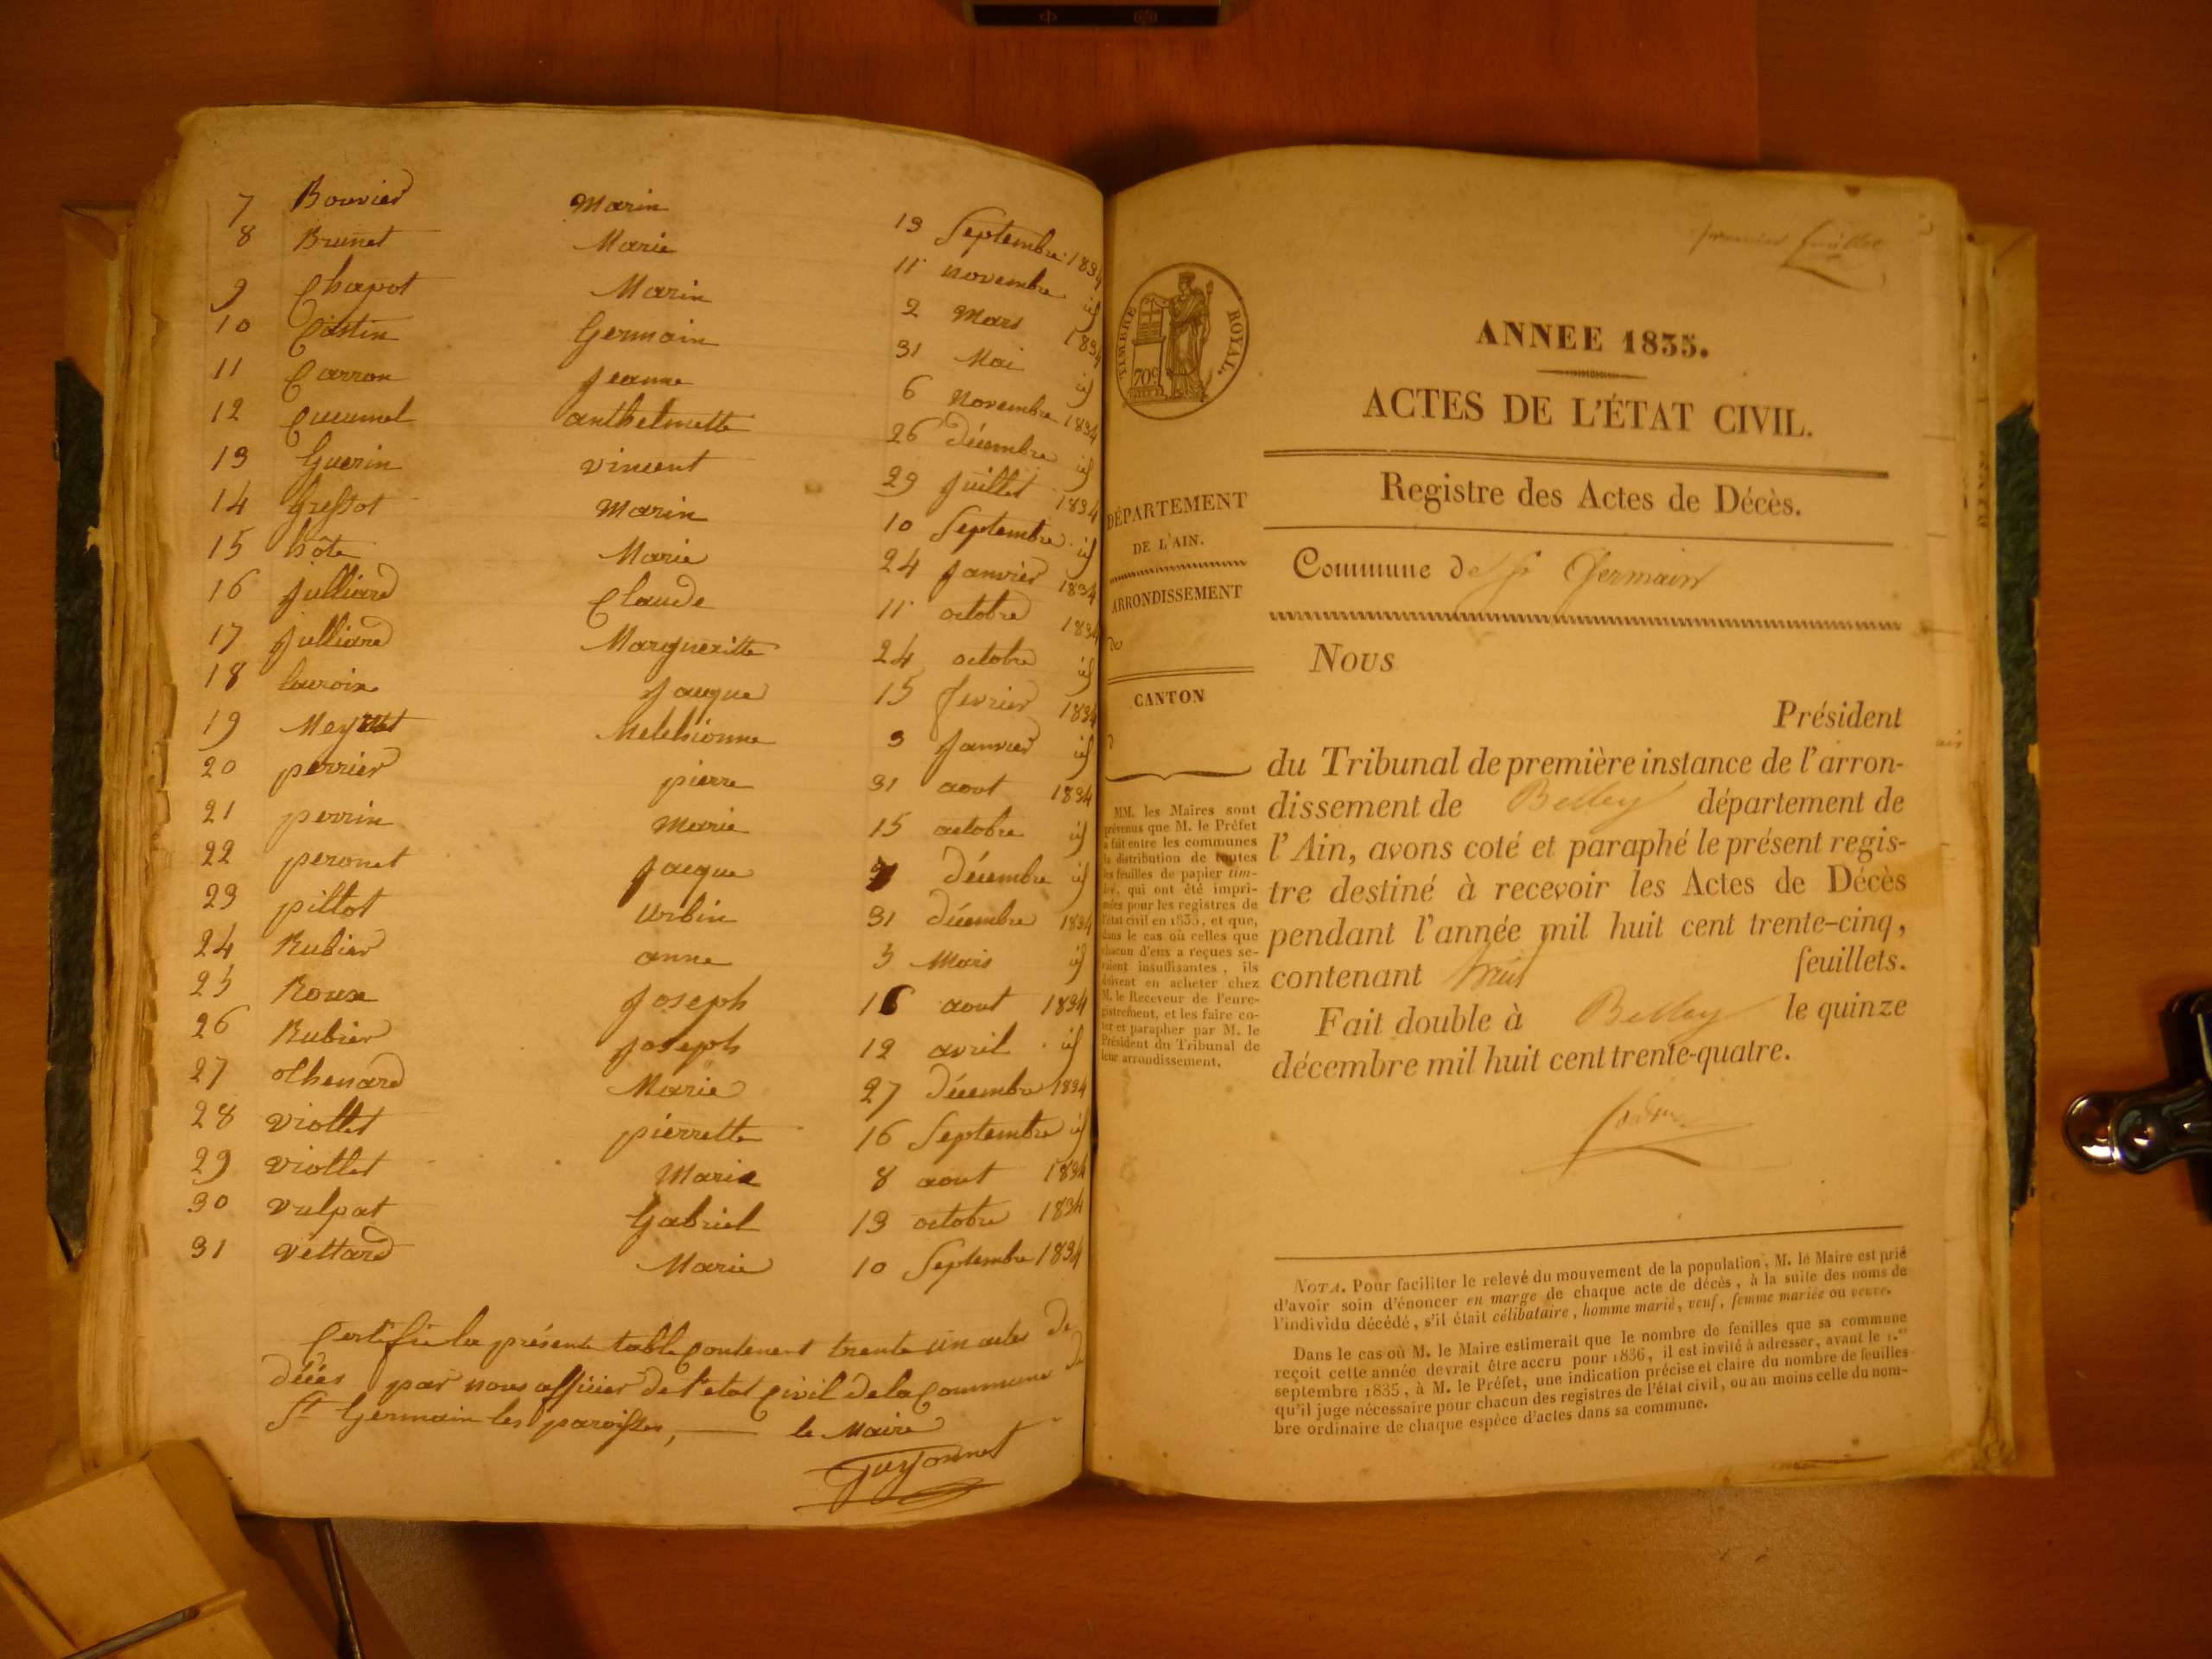 7 Bouvier Marin 13 Septembre 1834
8 Brunet Marie 11 novembre id
9 Chapot Marin 2 Mars 1834
10 Costin Germain 31 Mai id
11 Carron Jeanne 6 Novembre 1834
12 anthelmette 26 décembre id
13 Guerin vincent 29 Juillet 1834
14 Marin 10 Septembre id
15 hôte Marie 24 Janvier 1834
16 Julliard Claude 11 octobre 1834
17 Julliard Margueritte 24 octobre id
18 Jacque 15 fevrier 1834
19 3 Janvier id
20 perrier pierre 31 aout 1834
21 perrin Marie 15 octobre id
22 peronet Jacque décembre id
23 pittot Urbin 31 décembre 1834
24 Rubier anne 5 Mars id
25 Roux Joseph 16 aout 1834
26 Rubier Joseph 12 avril id
27 thenard Marie 27 décembre 1834
28 viollet pierrette 16 Septembre id
29 viollet Marie 8 aout 1834
30 vulpat Gabriel 13 octobre 1834
31 vettard Marie 10 Septembre 1834
Certifie la présente table contenent trente un actes de
décés par nous officier de l'etat civil de la Commune de
St Germain les paroisses, le Maire
premier feuillet
TIMBRE ROYAL.
70c
ANNEE 1835.
ACTES DE L'ÉTAT CIVIL.
Registre des Actes de Décès.
DÉPARTEMENT
DE L'AIN.
ARRONDISSEMENT
de
CANTON
d
MM. les Maires sont
prévenus que M. le Préfet
a fait entre les communes
la distribution de toutes
les feuilles de papier tim-
bré, qui ont été impri-
mées pour les registres de
l'état civil en 1835, et que,
dans le cas où celles que
chacun d'eux a reçues se-
raient insuffisantes, ils
doivent en acheter chez
M. le Receveur de l'enre-
gistrement, et les faire co-
ter et parapher par M. le
Président du Tribunal de
leur arrondissement.
Commune de St Germain
Nous
Président
du Tribunal de première instance de l'arron-
dissement de Belley département de
l'Ain, avons coté et paraphé le présent regis-
tre destiné à recevoir les Actes de Décès
pendant l'année mil huit cent trente-cinq,
contenant huit feuillets.
Fait double à Belley le quinze
décembre mil huit cent trente-quatre.
NOTA. Pour faciliter le relevé du mouvement de la population, M. le Maire est prié
d'avoir soin d'énoncer en marge de chaque acte de décès, à la suite des noms de
l'individu décédé, s'il était célibataire, homme marié, veuf, femme mariée ou veuve.
Dans le cas où M. le Maire estimerait que le nombre de feuilles que sa commune
reçoit cette année devrait être accru pour 1836, il est invité à adresser, avant le 1.er
septembre 1835, à M. le Préfet, une indication précise et claire du nombre de feuilles
qu'il juge nécessaire pour chacun des registres de l'état civil, ou au moins celle du nom-
bre ordinaire de chaque espèce d'actes dans sa commune.